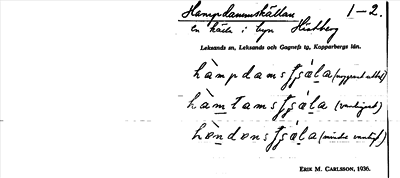 Hampdamskällan 1–2.
en källa i byn Hisvberg
Leksands sn, Leksands och Gagnefs tg, Kopparbergs län.
hàmpdamsʃʃä́la (noggrant uttal)
hàmtamsʃʃä́la (vanligast)
hòndonsʃʃä́la (mindre vanligt)
ERIK M. CARLSSON, 1936.